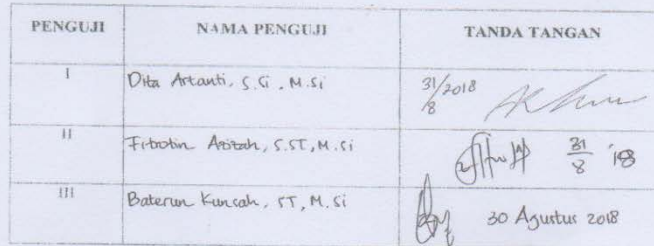 PENGUJI NAMA PENGUJI TANDA TANGAN
I Dita Artanti, S.Si, M.Si 31/8 2018
II Fitrotin Azizah, S.ST, M.Si 31/8 '18
III Baterun Kunsah, ST, M.Si 30 Agustus 2018